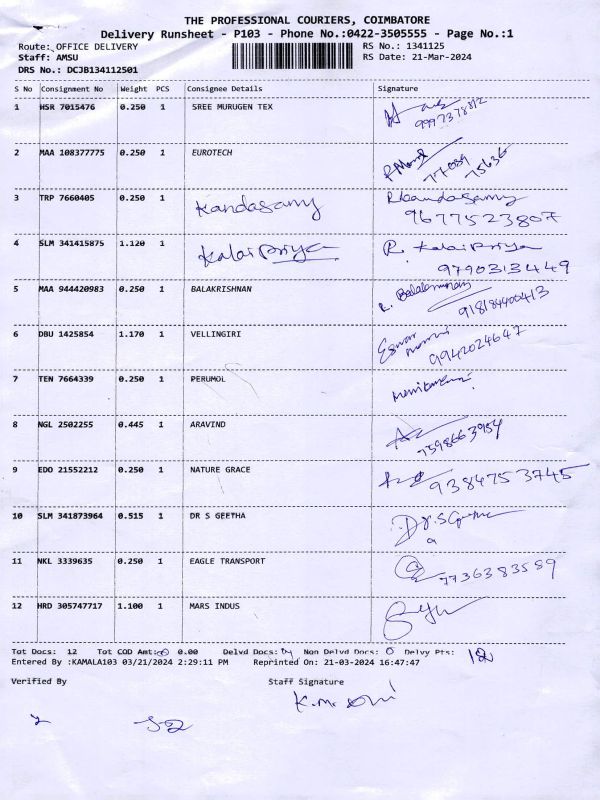 THE PROFESSIONAL COURIERS, COIMBATORE
Delivery Runsheet - P103 - Phone No.:0422-3505555 - Page No.:1
Route: OFFICE DELIVERY RS No.: 1341125
Staff: AMSU RS Date: 21-Mar-2024
DRS No.: DCJB134112501
S No Consignment No Weight PCS Consignee Details Signature
1 HSR 7015476 0.250 1 SREE MURUGEN TEX
2 MAA 108377775 0.250 1 EUROTECH
77089
75636
3 TRP 7660405 0.250 1 Kandasamy R Kandasamy
9677523807
4 SLM 341415875 1.120 1 Kalai Priya R. Kalai Priya
9790313449
5 MAA 944420983 0.250 1 BALAKRISHNAN
918184400413
6 DBU 1425854 1.170 1 VELLINGIRI Eswar
9942024647
7 TEN 7664339 0.250 1 PERUMOL
8 NGL 2502255 0.445 1 ARAVIND
7598663954
9 EDO 21552212 0.250 1 NATURE GRACE 9384753745
10 SLM 341873964 0.515 1 DR S GEETHA Dr.S
11 NKL 3339635 0.250 1 EAGLE TRANSPORT
7736383589
12 HRD 305747717 1.100 1 MARS INDUS
Tot Docs: 12 Tot COD Amt: 0.00 Delvd Docs: Non Delvd Docs: 0 Delvy Pts: 12
Entered By :KAMALA103 03/21/2024 2:29:11 PM Reprinted On: 21-03-2024 16:47:47
Verified By Staff Signature